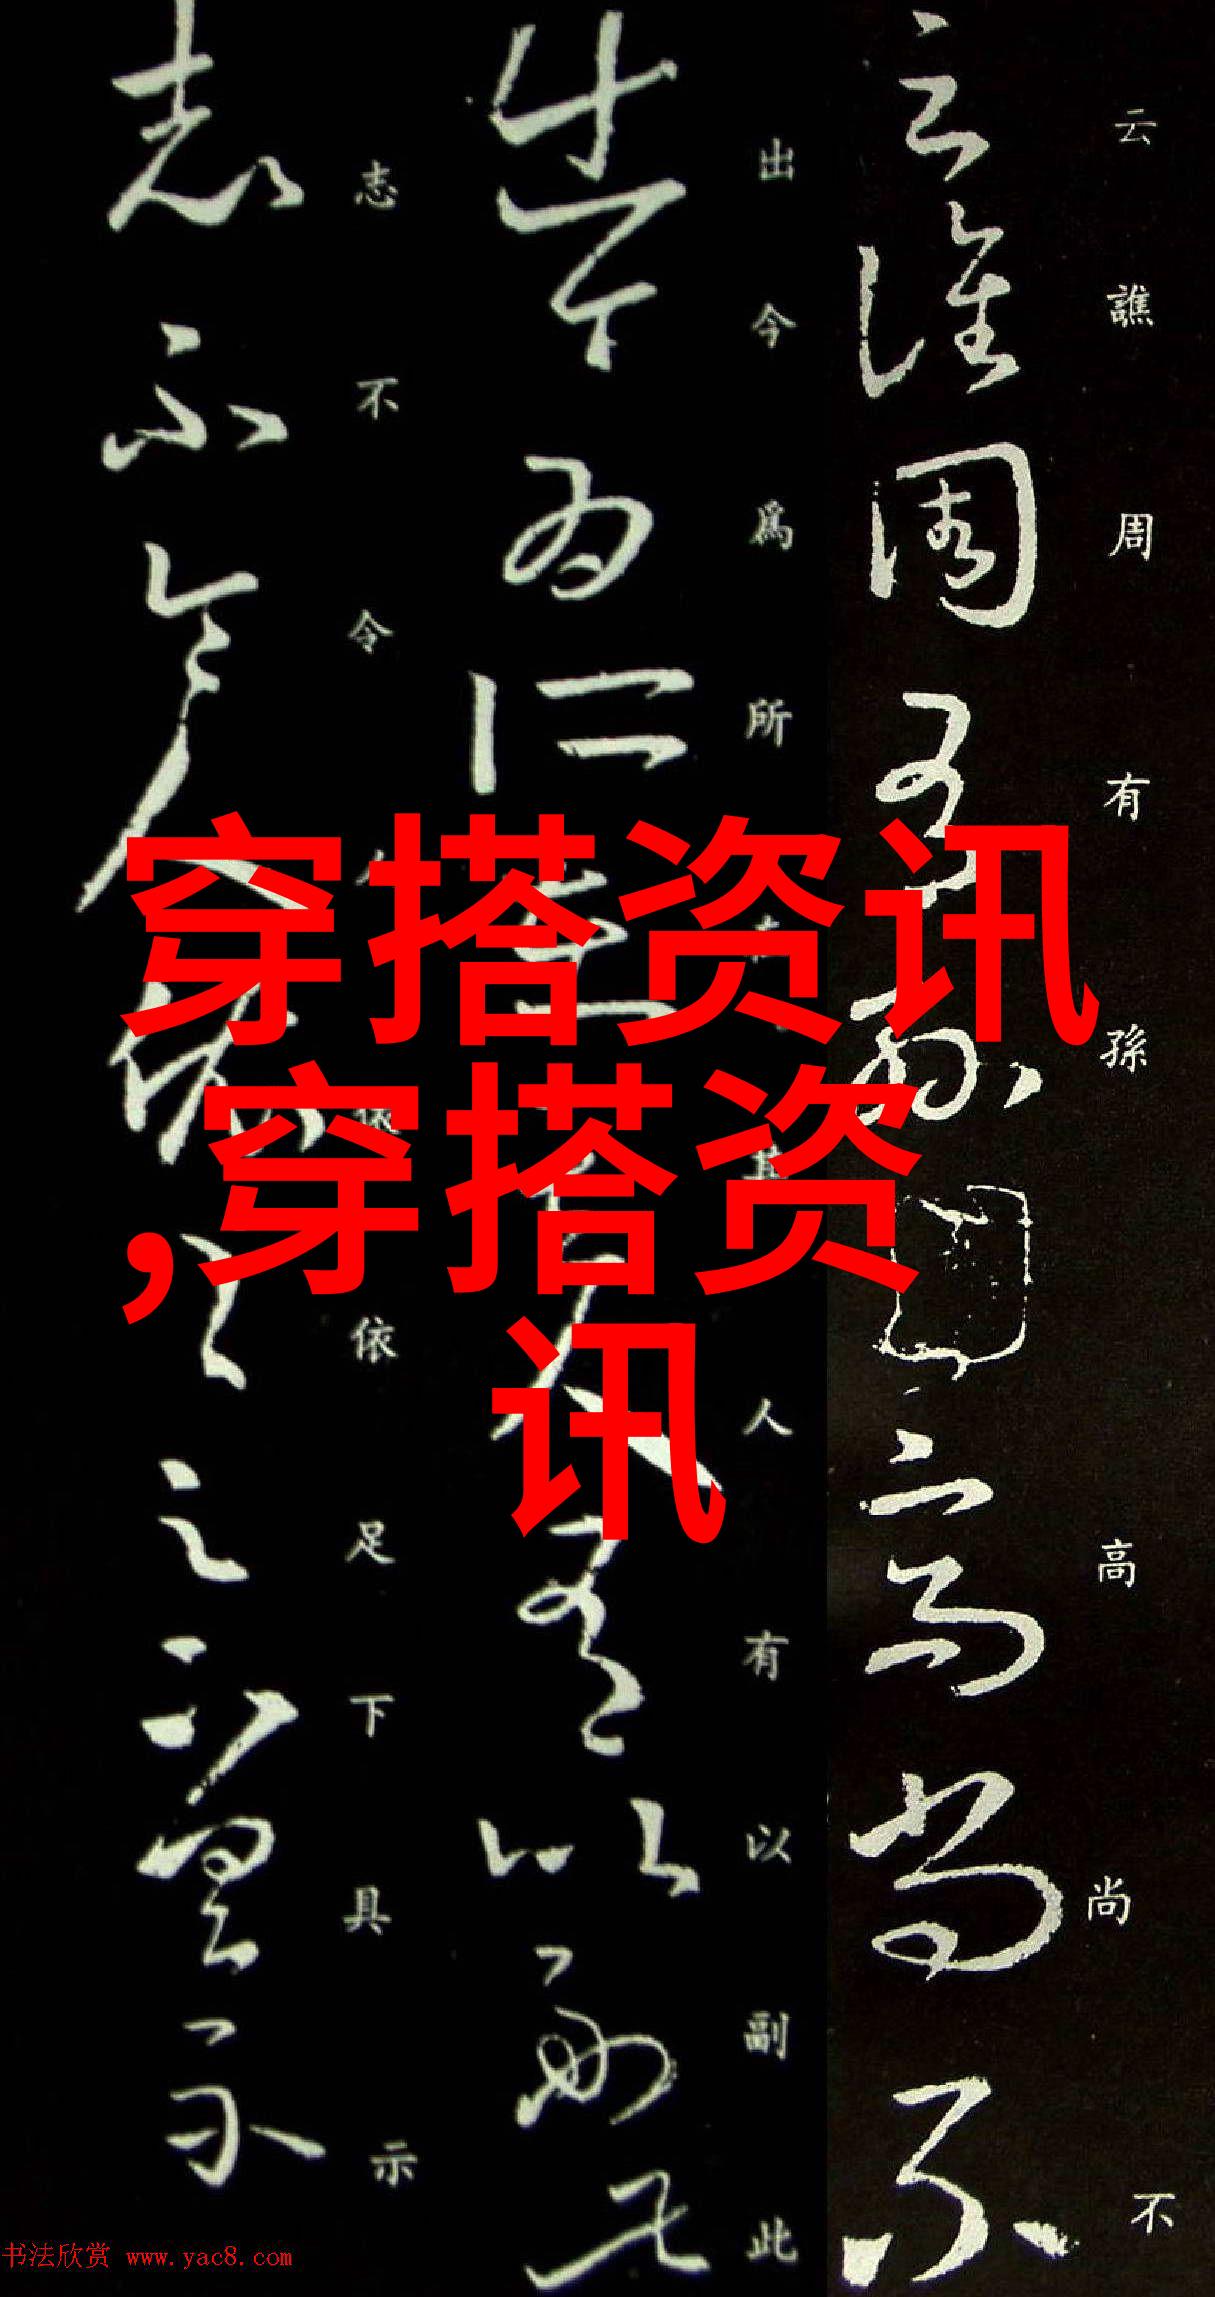 云譙周有孫高尚不
出今為所
人有以副此
志不令
依足下具示
穿搭资讯
,穿搭资
讯
书法欣赏 www.yac8.com